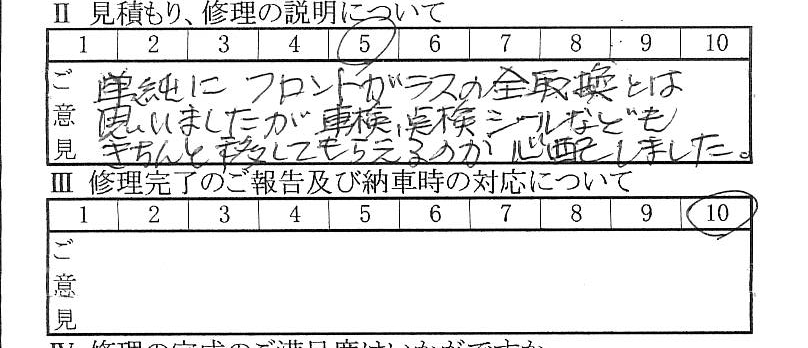 II 見積もり、修理の説明について
1 2 3 4 5 6 7 8 9 10
ご意見
単純にフロントガラスの全取換とは
思いましたが車検、点検シールなども
きちんと移してもらえるのか心配しました。
III 修理完了のご報告及び納車時の対応について
1 2 3 4 5 6 7 8 9 10
ご意見
IV 修理の完成のご満足度はいかがですか